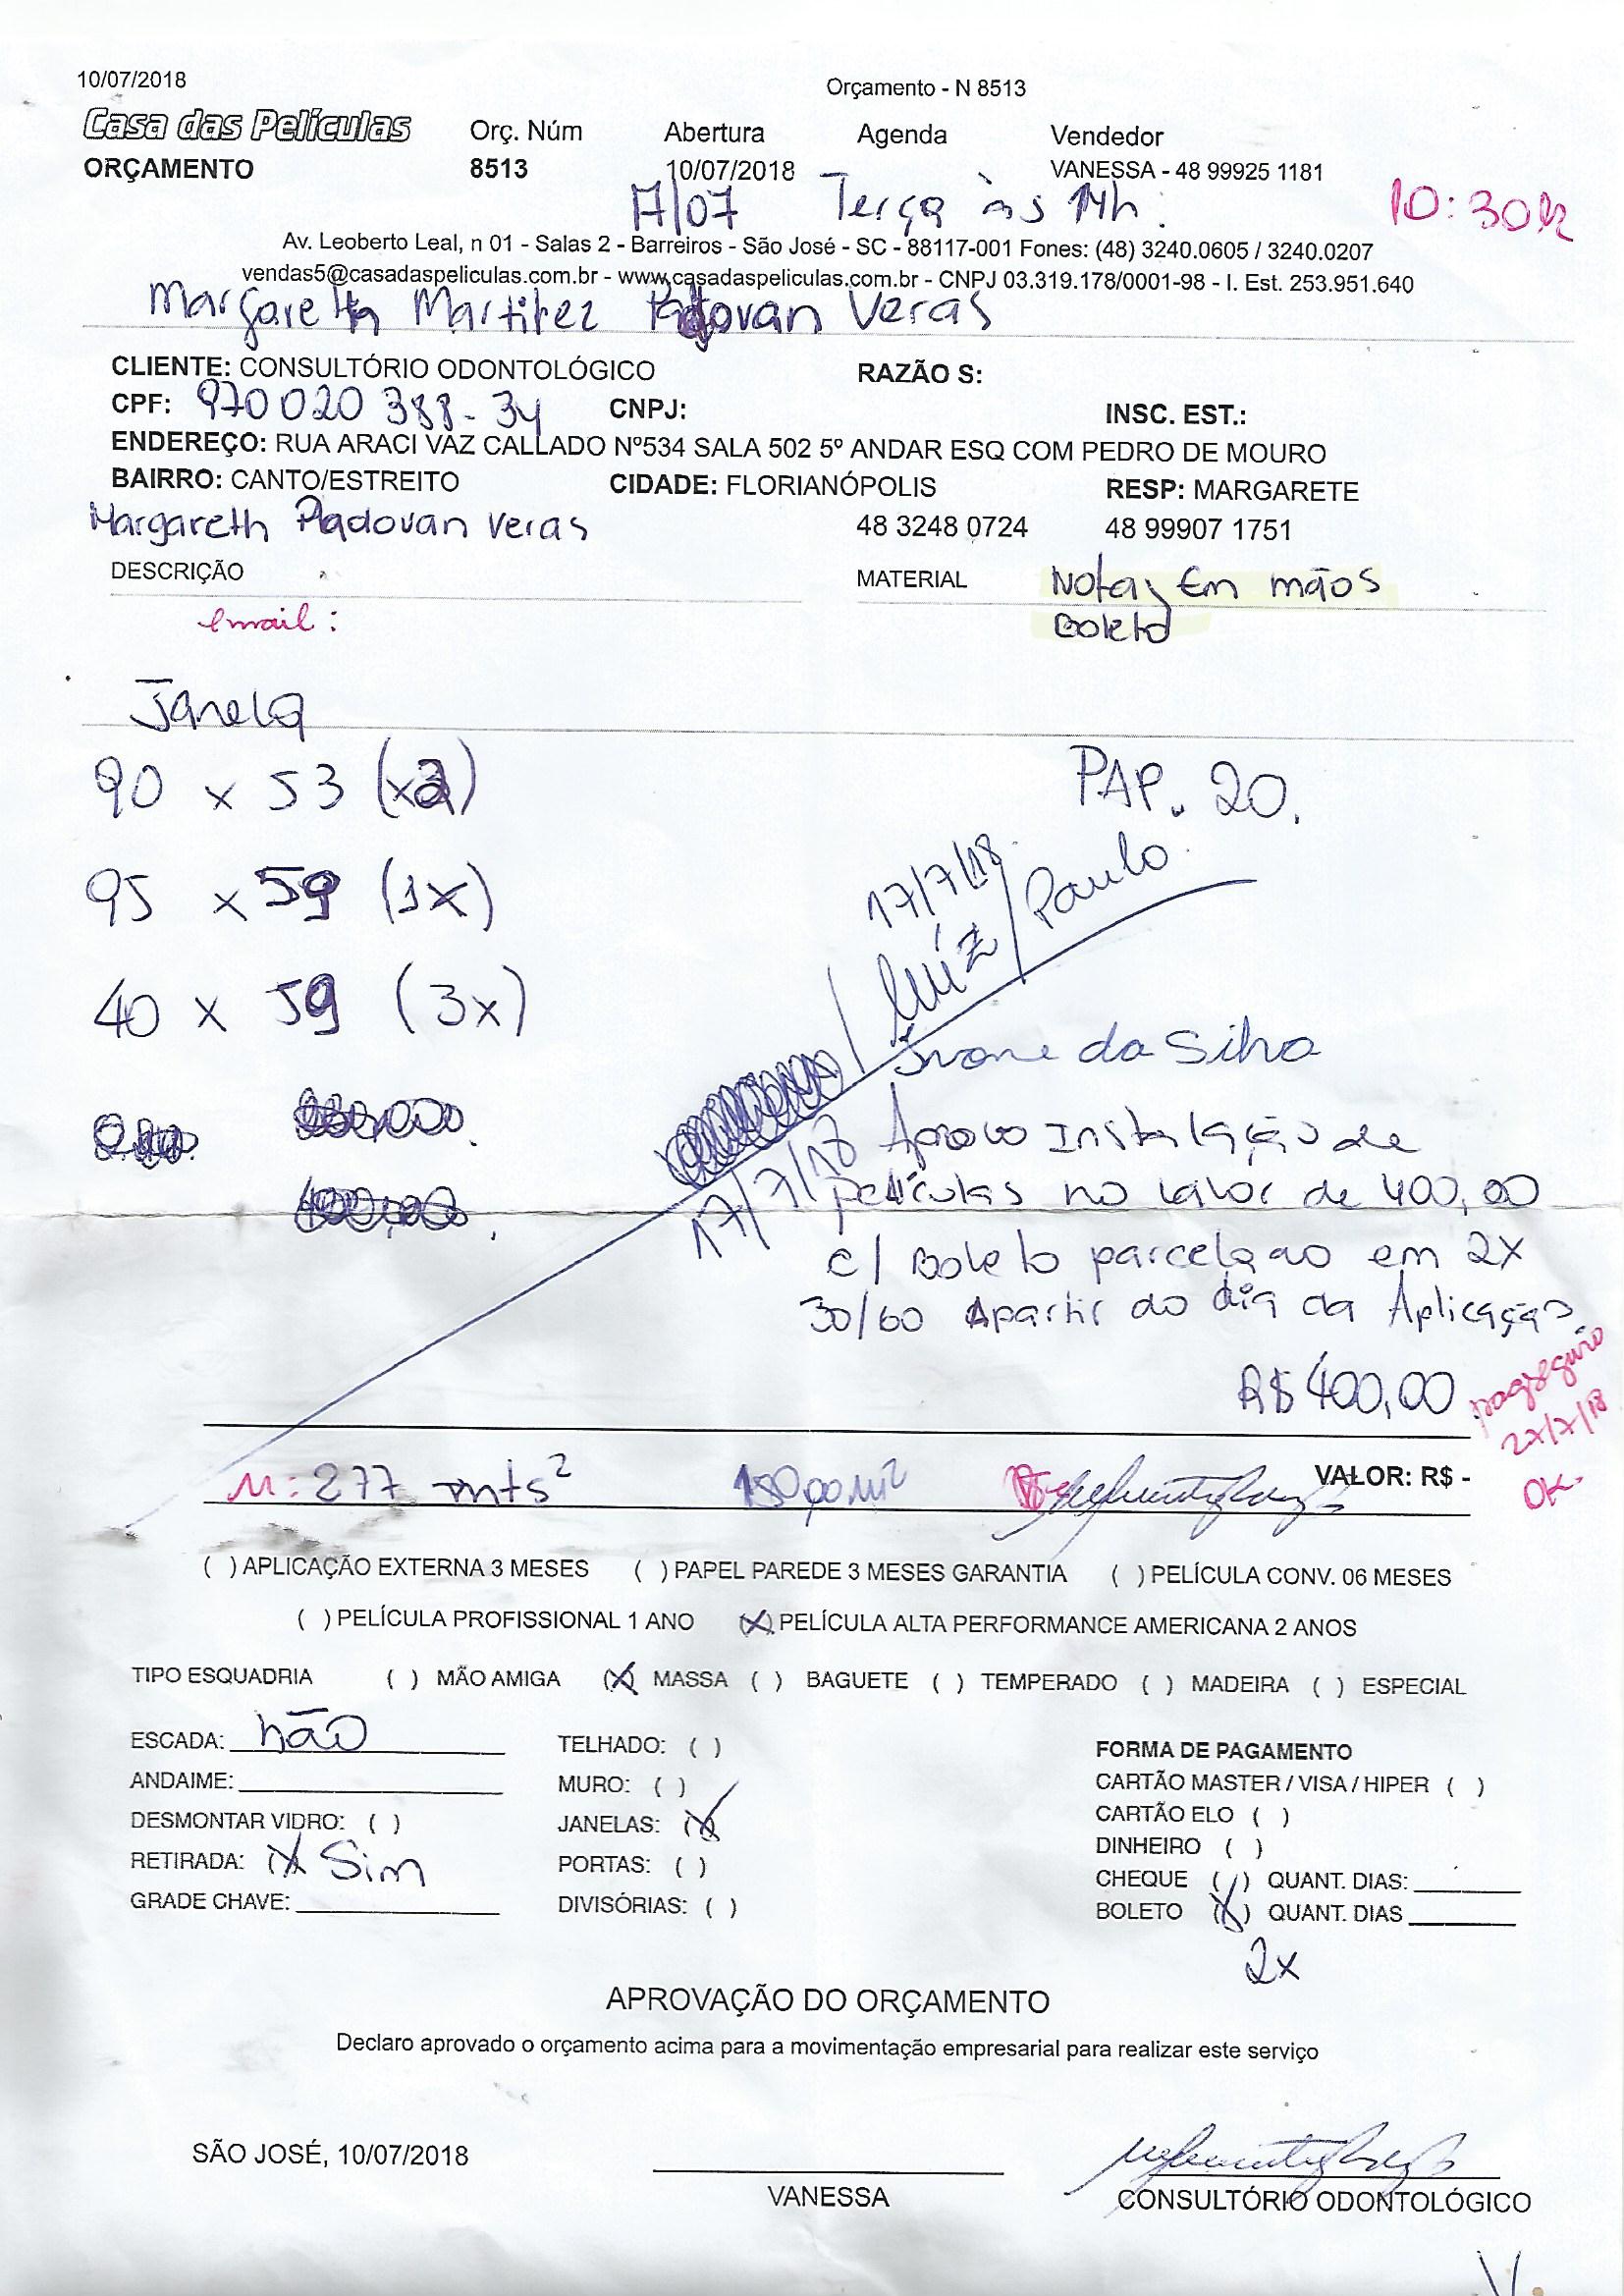 10/07/2018
Orçamento - N 8513
Casa das Películas
Orç. Núm Abertura Agenda Vendedor
ORÇAMENTO 8513 10/07/2018 VANESSA - 48 99925 1181
17/07 Terça às 14h. 10:30h
Av. Leoberto Leal, n 01 - Salas 2 - Barreiros - São José - SC - 88117-001 Fones: (48) 3240.0605 / 3240.0207
vendas5@casadaspeliculas.com.br - www.casadaspeliculas.com.br - CNPJ 03.319.178/0001-98 - I. Est. 253.951.640
Margareth Padovan Veras
CLIENTE: CONSULTÓRIO ODONTOLÓGICO RAZÃO S:
CPF: 970 020 388-34 CNPJ: INSC. EST.:
ENDEREÇO: RUA ARACI VAZ CALLADO Nº534 SALA 502 5º ANDAR ESQ COM PEDRO DE MOURO
BAIRRO: CANTO/ESTREITO CIDADE: FLORIANÓPOLIS RESP: MARGARETE
Margareth Padovan Veras 48 3248 0724 48 99907 1751
DESCRIÇÃO MATERIAL Nota Em mãos
email: Boleto
Janela
90 x 53
PAP. 20.
95 x 59 (1x)
17/7/18
Luiz / Paulo
40 x 59 (3x)
Ivone da Silva
17/7/18 Aprovo Instalação de
películas no valor de 400,00
c/ Boleto parcelao em 2x
30/60 Apartir do dia da Aplicação
R$ 400,00
pagseguro
27/7/18
OK.
M: 277 mts² VALOR: R$ -
( ) APLICAÇÃO EXTERNA 3 MESES ( ) PAPEL PAREDE 3 MESES GARANTIA ( ) PELÍCULA CONV. 06 MESES
( ) PELÍCULA PROFISSIONAL 1 ANO (X) PELÍCULA ALTA PERFORMANCE AMERICANA 2 ANOS
TIPO ESQUADRIA ( ) MÃO AMIGA (X) MASSA ( ) BAGUETE ( ) TEMPERADO ( ) MADEIRA ( ) ESPECIAL
ESCADA: não TELHADO: ( ) FORMA DE PAGAMENTO
ANDAIME: MURO: ( ) CARTÃO MASTER / VISA / HIPER ( )
DESMONTAR VIDRO: ( ) JANELAS: (X) CARTÃO ELO ( )
DINHEIRO ( )
RETIRADA: (X) Sim PORTAS: ( ) CHEQUE ( ) QUANT. DIAS:
GRADE CHAVE: DIVISÓRIAS: ( ) BOLETO (X) QUANT. DIAS
2x
APROVAÇÃO DO ORÇAMENTO
Declaro aprovado o orçamento acima para a movimentação empresarial para realizar este serviço
SÃO JOSÉ, 10/07/2018
VANESSA CONSULTÓRIO ODONTOLÓGICO